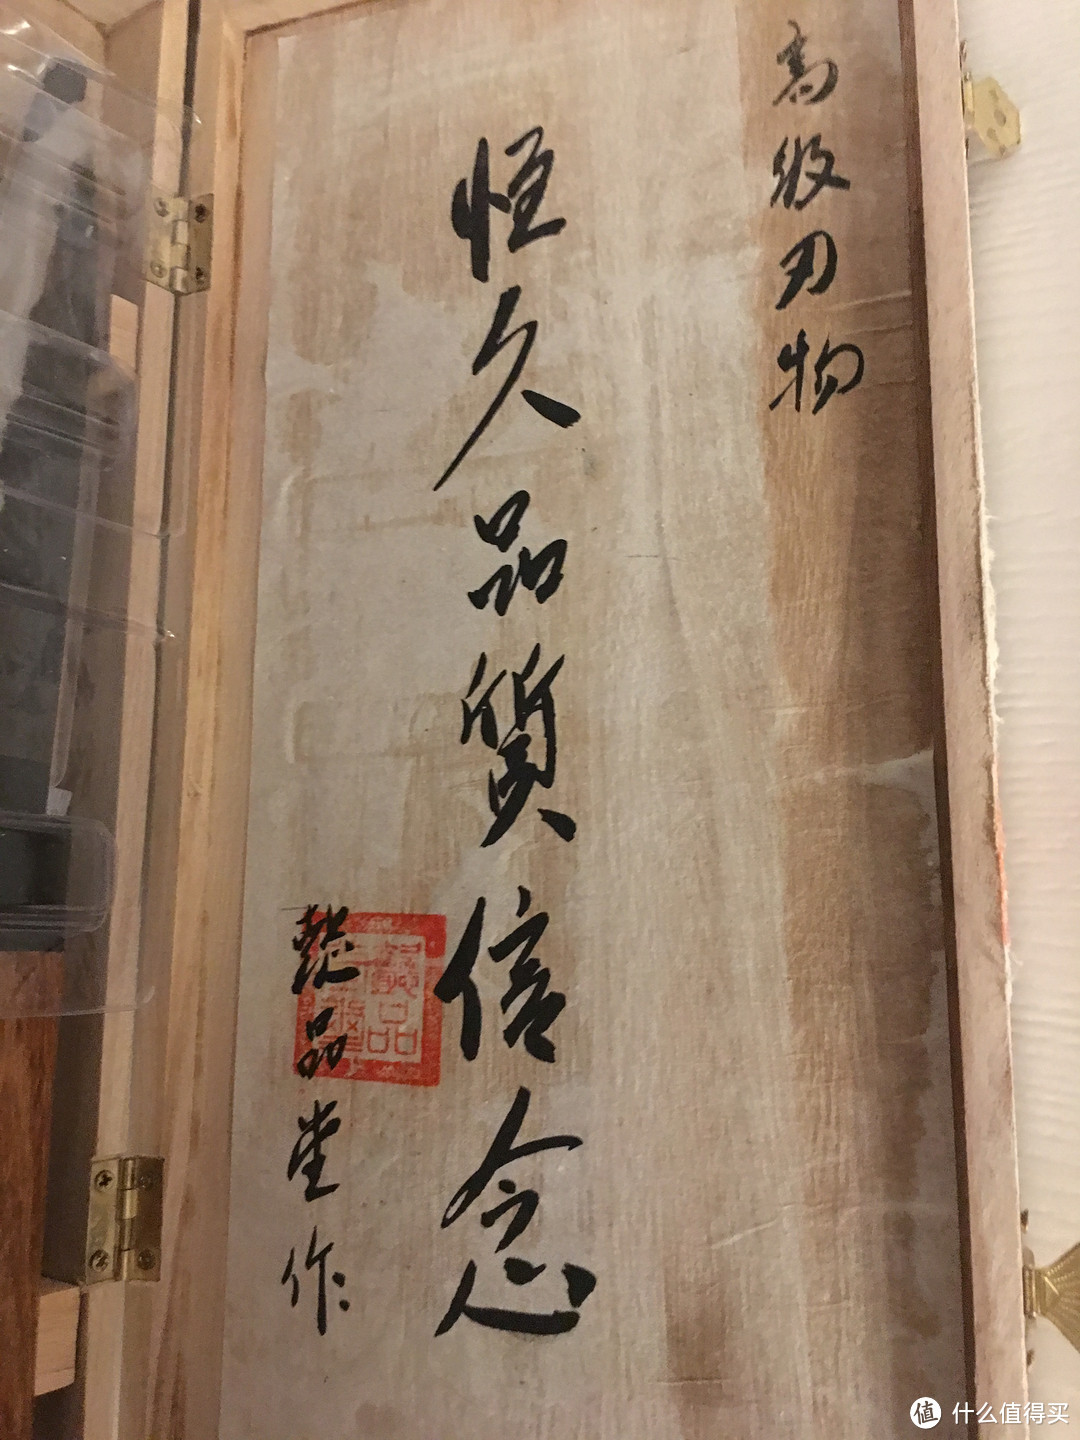 高級刃物
恒久品質信念
懿品堂作
值 什么值得买